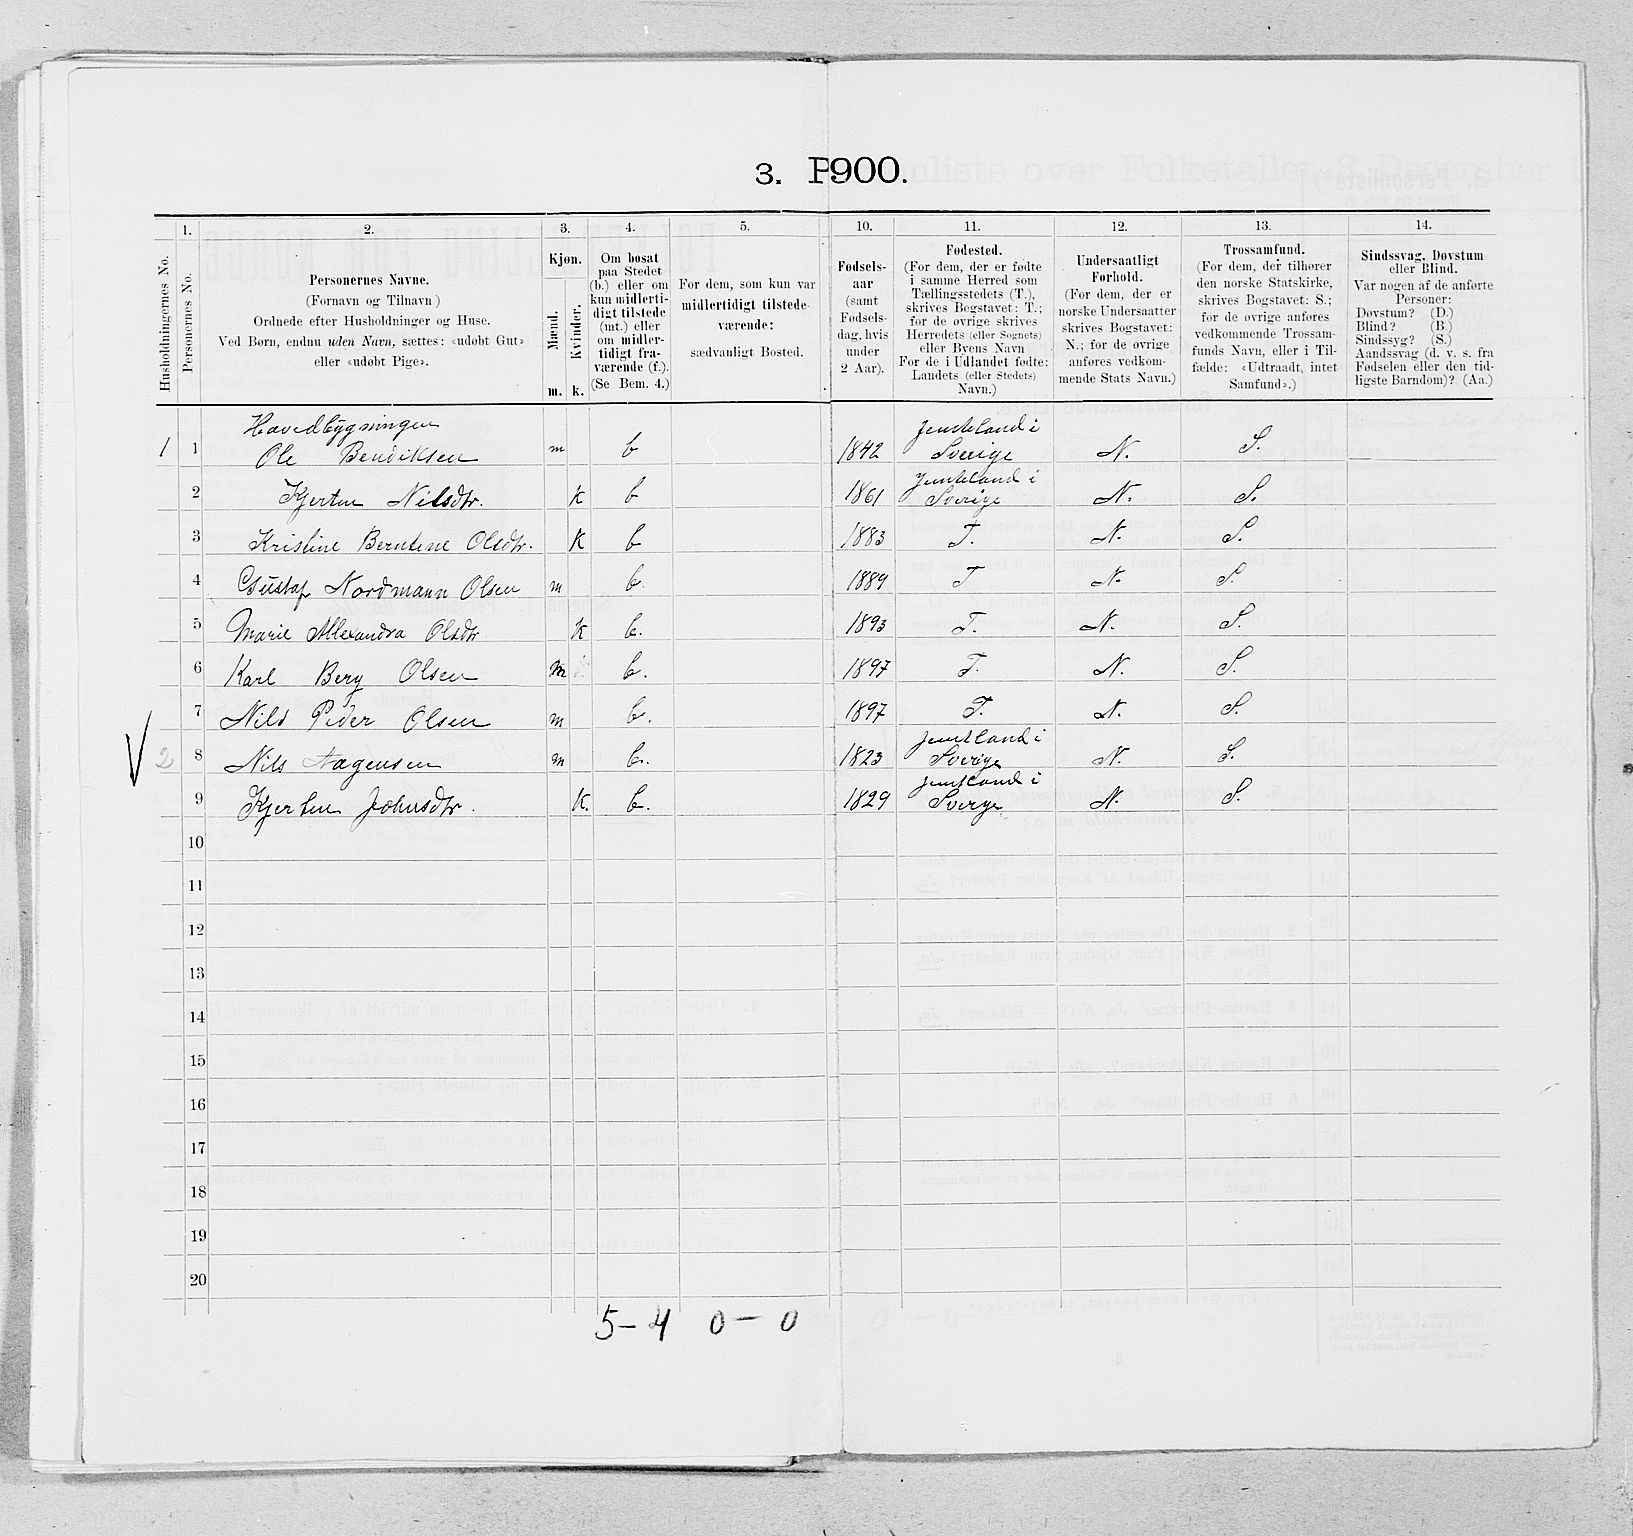 3. P900.
1. 2. 3. 4. 5. 10. 11. 12. 13. 14.
Husholdningernes No.
Personernes No.
Personernes Navne.
(Fornavn og Tilnavn)
Ordnede efter Husholdninger og Huse.
Ved Børn, endnu uden Navn, sættes: «udøbt Gut»
eller «udøbt Pige».
Kjøn.
Mænd.
Kvinder.
m. k.
Om bosat
paa Stedet
(b.) eller om
kun midlerti-
digt tilstede
(mt.) eller
om midler-
tidigt fra-
værende (f.).
(Se Bem. 4.)
For dem, som kun var
midlertidigt tilstede-
værende:
sædvanligt Bosted.
Fødsels-
aar
(samt
Fødsels-
dag, hvis
under
2 Aar).
Fødested.
(For dem, der er fødte
i samme Herred som
Tællingsstedets (T.),
skrives Bogstavet: T.;
for de øvrige skrives
Herredets (eller Sognets)
eller Byens Navn
For de i Udlandet fødte:
Landets (eller Stedets)
Navn.)
Undersaatligt
Forhold.
(For dem, der er
norske Undersaatter
skrives Bogstavet:
N.; for de øvrige
anføres vedkom-
mende Stats Navn.)
Trossamfund.
(For dem, der tilhører
den norske Statskirke,
skrives Bogstavet: S.;
for de øvrige anføres
vedkommende Trossam-
funds Navn, eller i Til-
fælde: «Udtraadt, intet
Samfund».)
Sindssvag, Døvstum
eller Blind.
Var nogen af de anførte
Personer:
Døvstum? (D.)
Blind? (B.)
Sindssyg? (S.)
Aandssvag (d. v. s. fra
Fødselen eller den tid-
ligste Barndom)? (Aa.)
Hovedbygningen Jemteland i
1 1 Ole Bendiksen m b 1842 Sverige N. S.
Jemteland i
2 Kjerten Nilsdtr. k b 1861 Sverige N. S.
3 Kristine Berntine Olsdtr. k b 1883 T. N. S.
4 Gustaf Nordmann Olsen m b. 1889 T N. S.
5 Marie Alexandra Olsdtr k b. 1893 T. N. S.
6 Karl Berg Olsen m b. 1897 T. N. S.
7 Nils Peder Olsen m b. 1897 T. N. S.
Jemtland i
2 8 Nils Aagensen m b. 1823 Sverige N. S.
Jemtland i
9 Kjerten Johnsdtr. k. b. 1829 Sverge N. S.
10
11
12
13
14
15
16
17
18
19
20
5-4 0-0